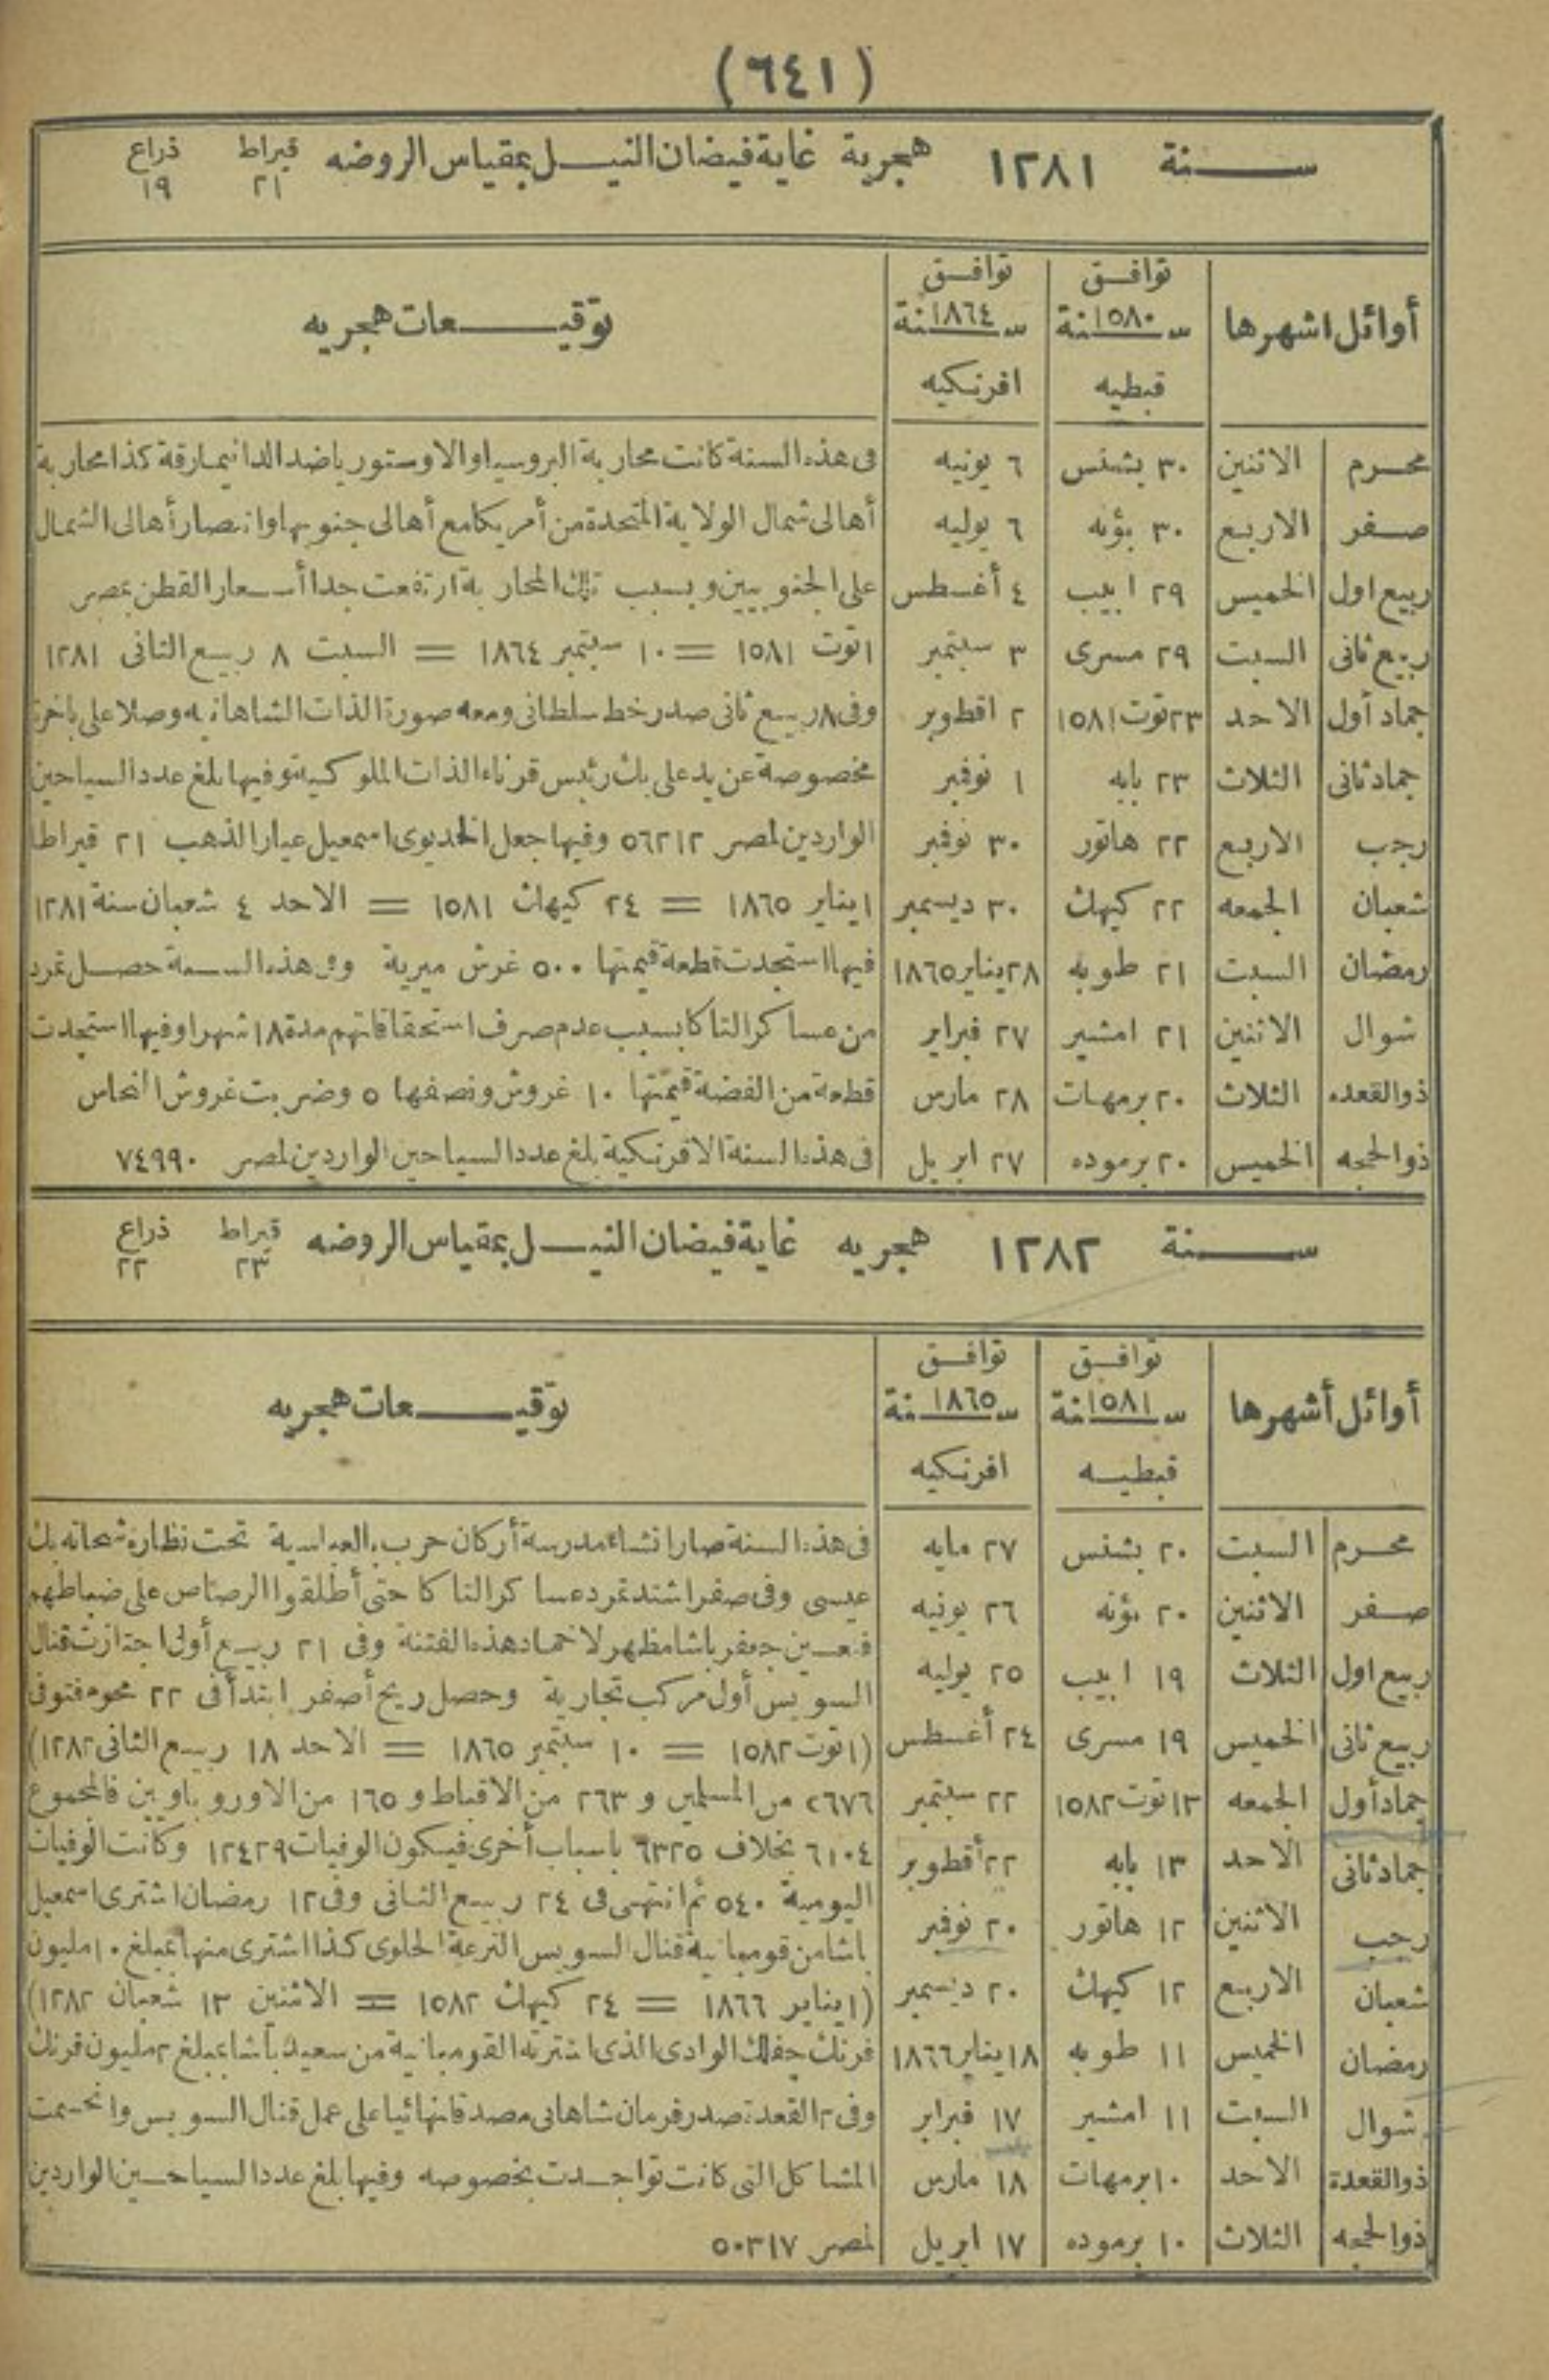 (٦٤١)
سنة ١٢٨١ هجرية غاية فيضان النيل بمقياس الروضه قيراط ٢١ ذراع ١٩
أوائل اشهرها توافق سنة ١٥٨٠ قبطيه توافق سنة ١٨٦٤ افرنكيه توقيعات هجريه
محرم الاثنين ٣٠ بشنس ٦ يونيه فى هذه السنة كانت محاربة البروسيا والاوستوريا ضد الدانيمارقة كذا محاربة
صفر الاربع ٣٠ بؤنه ٦ يوليه أهالى شمال الولاية المتحدة من أمريكا مع أهالى جنوبها وانتصار أهالى الشمال
ربيع اول الخميس ٢٩ ابيب ٤ أغسطس على الجنوبيين وبسبب تلك المحاربة ارتفعت جدا أسعار القطن بمصر
ربيع ثانى السبت ٢٩ مسرى ٣ سبتمبر ١ توت ١٥٨١ = ١٠ سبتمبر ١٨٦٤ = السبت ٨ ربيع الثانى ١٢٨١
جماد أول الاحد ٢٣ توت ١٥٨١ ٢ اقطوبر وفى ٨ ربيع ثانى صدر خط سلطانى ومعه صورة الذات الشاهانيه وصلا على باخرة
جماد ثانى الثلاث ٢٣ بابه ١ نوفمبر مخصوصة عن يد على بك رئيس قرناء الذات الملوكية وفيها بلغ عدد السياحين
رجب الاربع ٢٢ هاتور ٣٠ نوفمبر الواردين لمصر ٥٦٢١٢ وفيها جعل الخديوى اسمعيل عيار الذهب ٢١ قيراطا
شعبان الجمعه ٢٢ كيهك ٣٠ ديسمبر ١ يناير ١٨٦٥ = ٢٤ كيهك ١٥٨١ = الاحد ٤ شعبان سنة ١٢٨١
رمضان السبت ٢١ طوبه ٢٨ يناير ١٨٦٥ فيها استجدت قطعة قيمتها ٥٠٠ غرش ميرية وفى هذه السنة حصل تمرد
شوال الاثنين ٢١ امشير ٢٧ فبراير من عساكر التاكا بسبب عدم صرف استحقاقاتهم مدة ١٨ شهرا وفيها استجدت
ذو القعده الثلاث ٢٠ برمهات ٢٨ مارس قطعة من الفضة قيمتها ١٠ غروش ونصفها ٥ وضربت غروش النحاس
ذو الحجه الخميس ٢٠ برموده ٢٧ ابريل فى هذه السنة الافرنكية بلغ عدد السياحين الواردين لمصر ٧٤٩٩٠
سنة ١٢٨٢ هجريه غاية فيضان النيل بمقياس الروضه قيراط ٢٣ ذراع ٢٢
أوائل أشهرها توافق سنة ١٥٨١ قبطيه توافق سنة ١٨٦٥ افرنكيه توقيعات هجريه
محرم السبت ٢٠ بشنس ٢٧ مايه فى هذه السنة صار انشاء مدرسة أركان حرب بالعباسية تحت نظارة شحاته بك
صفر الاثنين ٢٠ بؤنه ٢٦ يونيه عيسى وفى صفر اشتد تمرد عساكر التاكا حتى أطلقوا الرصاص على ضباطهم
فتعين جعفر باشا مظهر لاخماد هذه الفتنة وفى ٢١ ربيع أول اجتازت قنال
ربيع اول الثلاث ١٩ ابيب ٢٥ يوليه السويس أول مركب تجارية وحصل ريح أصفر ابتدأ فى ٢٢ محرم فتوفى
ربيع ثانى الخميس ١٩ مسرى ٢٤ أغسطس (١ توت ١٥٨٢ = ١٠ سبتمبر ١٨٦٥ = الاحد ١٨ ربيع الثانى ١٢٨٢)
جماد أول الجمعه ١٣ توت ١٥٨٢ ٢٢ سبتمبر ٥٦٧٦ من المسلمين و ٢٦٣ من الاقباط و ١٦٥ من الاوروباويين فالمجموع
جماد ثانى الاحد ١٣ بابه ٢٢ أقطوبر ٦١٠٤ بخلاف ٦٣٢٥ باسباب أخرى فيكون الوفيات ١٢٤٢٩ وكانت الوفيات
اليومية ٥٤٠ ثم انتهى فى ٢٤ ربيع الثانى وفى ١٢ رمضان اشترى اسمعيل
رجب الاثنين ١٢ هاتور ٢٠ نوفمبر باشا من قومبانية قنال السويس الترعة الحلوى كذا اشترى منها بمبلغ ١٠ مليون
شعبان الاربع ١٢ كيهك ٢٠ ديسمبر (١ يناير ١٨٦٦ = ٢٤ كيهك ١٥٨٢ = الاثنين ١٣ شعبان ١٢٨٢)
رمضان الخميس ١١ طوبه ١٨ يناير ١٨٦٦ فرنك جفلك الوادى الذى اشترته القومبانية من سعيد باشا بمبلغ ٢ مليون فرنك
شوال السبت ١١ امشير ١٧ فبراير وفى ٢ القعدة صدر فرمان شاهانى مصدقا نهائيا على عمل قنال السويس وانحسمت
ذو القعدة الاحد ١٠ برمهات ١٨ مارس المشاكل التى كانت تواجدت بخصوصه وفيها بلغ عدد السياحين الواردين
ذو الحجه الثلاث ١٠ برموده ١٧ ابريل لمصر ٥٠٣١٧